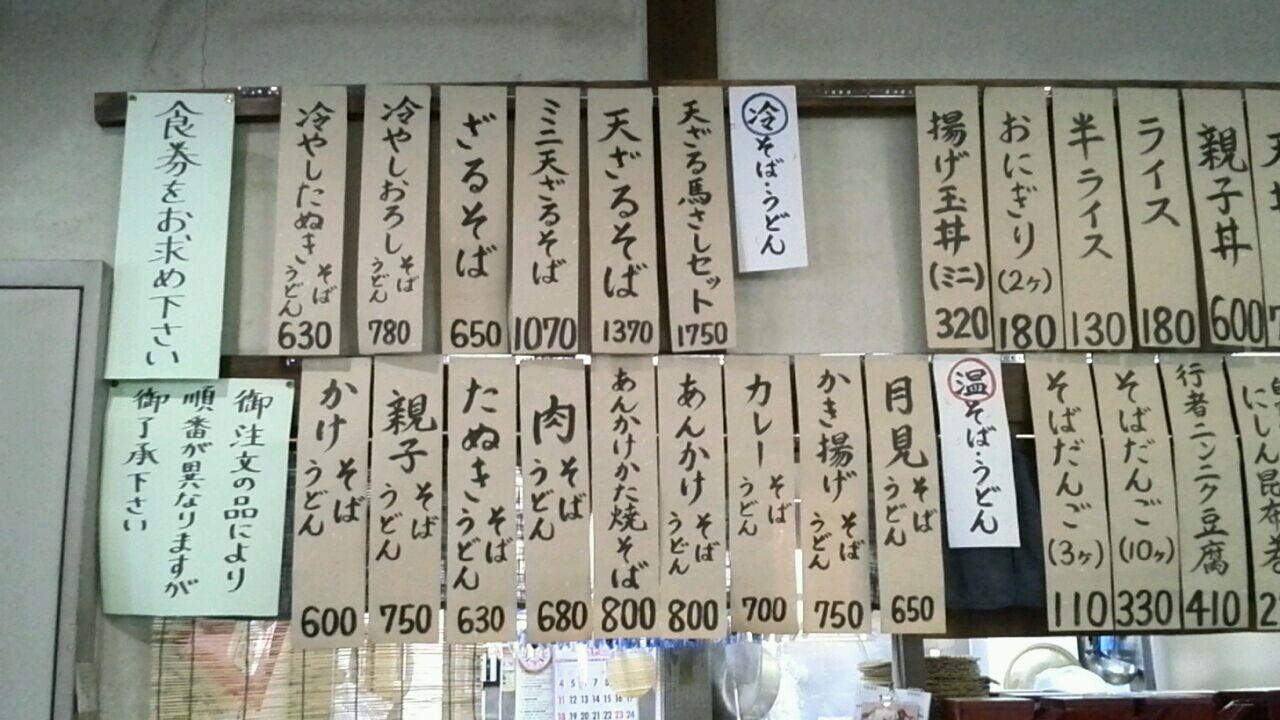 食券をお求め下さい
冷やしたぬき そば うどん 630
冷やしおろし そば うどん 780
ざるそば 650
ミニ天ざるそば 1070
天ざるそば 1370
天ざる馬さしセット 1750
冷 そば・うどん
揚げ玉丼(ミニ) 320
おにぎり(2ヶ) 180
半ライス 130
ライス 180
親子丼 600
御注文の品により
順番が異なりますが
御了承下さい
かけ そば うどん 600
親子 そば うどん 750
たぬき そば うどん 630
肉 そば うどん 680
あんかけかた焼そば 800
あんかけ そば うどん 800
カレー そば うどん 700
かき揚げ そば うどん 750
月見 そば うどん 650
温 そば・うどん
そばだんご(3ヶ) 110
そばだんご(10ヶ) 330
行者ニンニク豆腐 410
にしん昆布巻